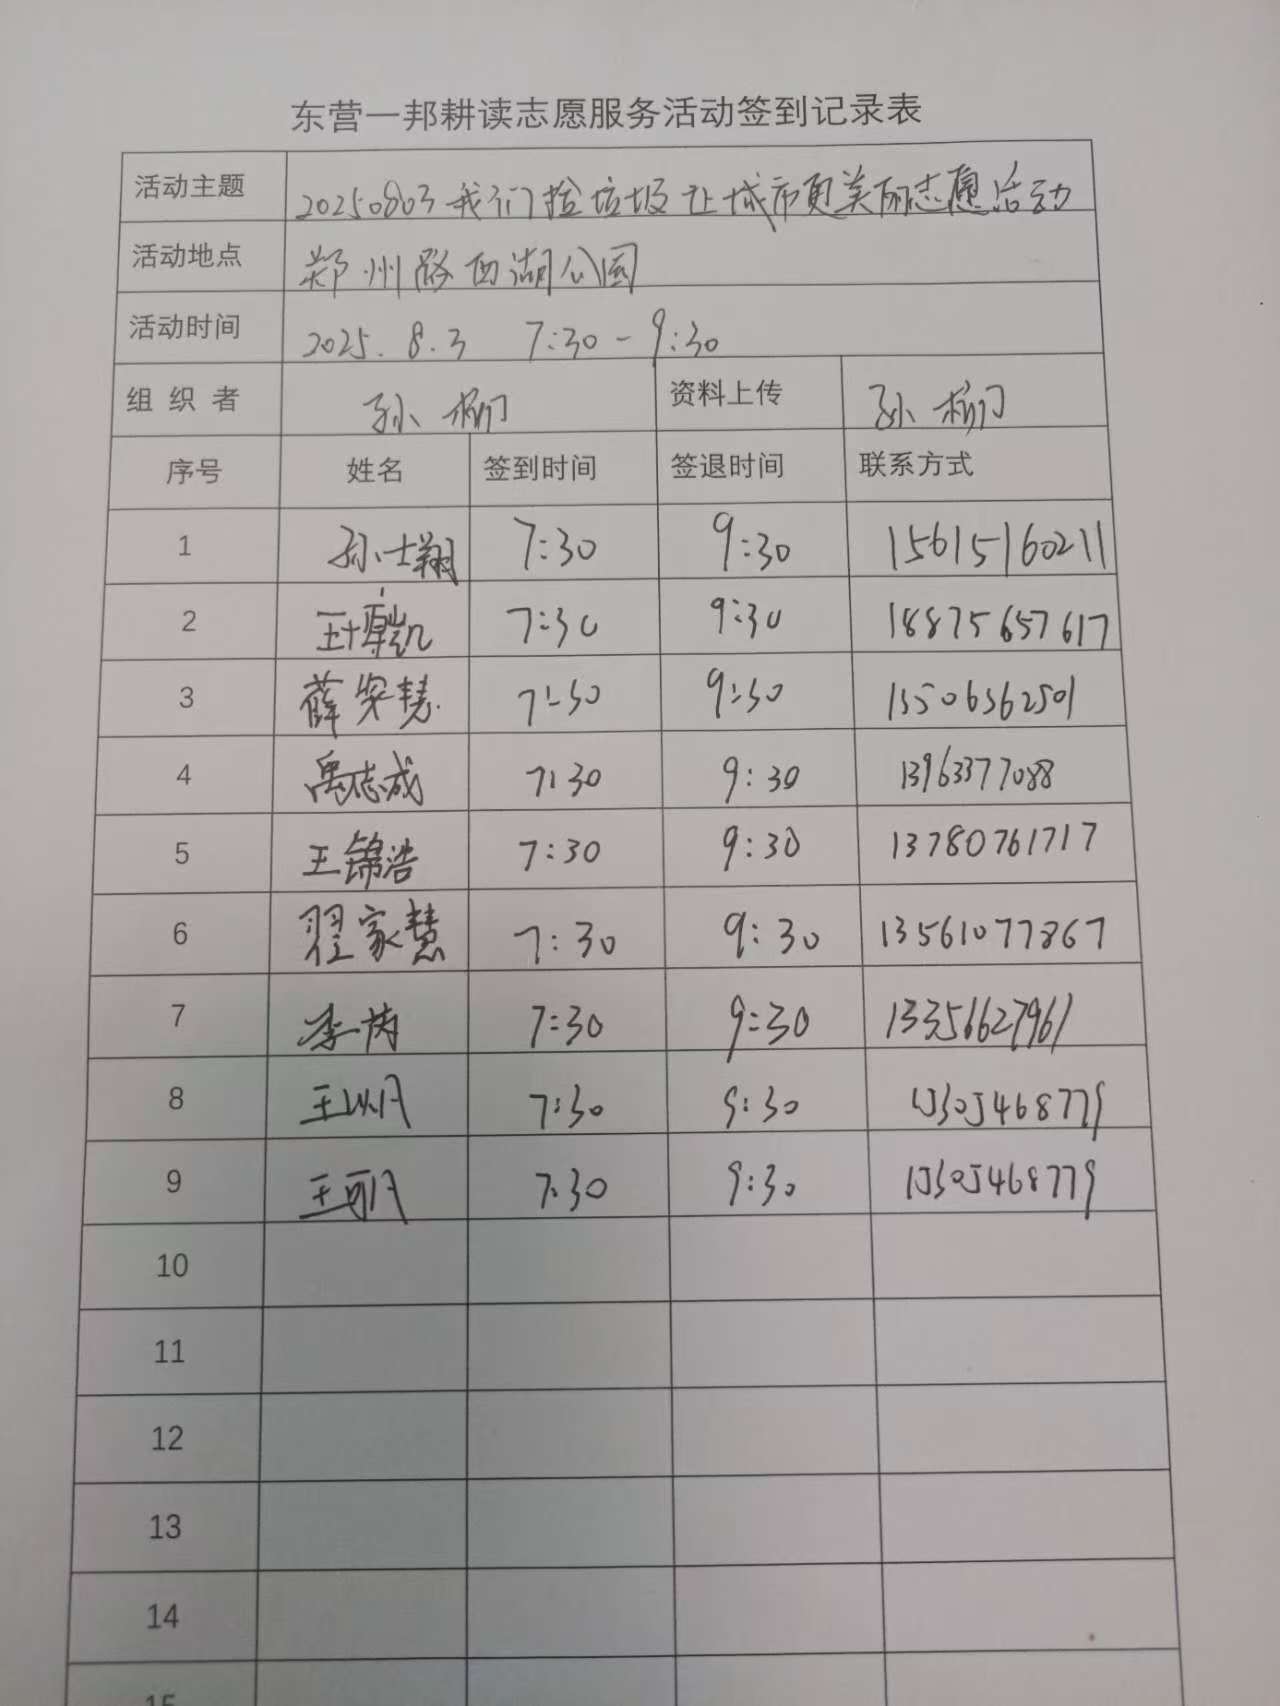 东营一邦耕读志愿服务活动签到记录表
活动主题 20250803我们捡垃圾让城市更美丽志愿活动
活动地点 郑州路西湖公园
活动时间 2025.8.3 7:30-9:30
组织者 孙 资料上传 孙
序号 姓名 签到时间 签退时间 联系方式
1 孙士翔 7:30 9:30 15615160211
2 王 7:30 9:30 18875657617
3 薛 慧 7:30 9:30 13506362501
4 禹志成 7:30 9:30 13963377088
5 王锦浩 7:30 9:30 13780761717
6 翟家慧 7:30 9:30 13561077867
7 李 7:30 9:30 13356627961
8 王以凡 7:30 9:30 15305468779
9 王可凡 7:30 9:30 15305468779
10
11
12
13
14
15